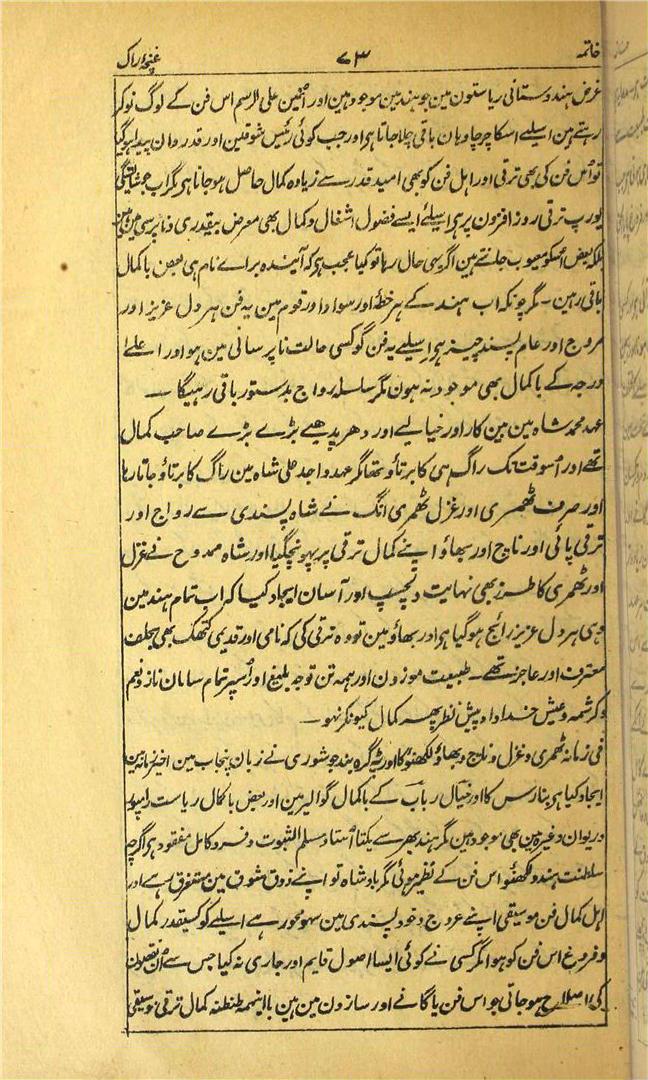 خاتمہ ۷۳ غنچۂ راگ
غرض ہندوستانی ریاستون مین جو ہند مین موجود ہین اور انھین علی الرسم اس فن کے لوگ نوکر
رہتے ہین اسلیے اسکا چرچا وہان باقی چلا جاتا ہی اور جب کوئی رئیس شوقین اور قدردان پیدا ہوگیا
تو اُس فن کی بھی ترقی اور اہل فن کو بھی امید قدر سے زیادہ کمال حاصل ہوجاتا ہی مگر اب جو شائستگی
یورپ ترقی روز افزون پر ہی اسلیے ایسے فضول اشغال و کمال بھی معرض بیقدری و ناپرسی مین ہین
بلکہ بعض اُسکو معیوب جانتے ہین اگر یہی حال رہا تو کیا عجب ہی کہ آیندہ براے نام ہی بعض باکمال
باقی رہین ۔ مگر چونکہ اب ہند کے ہر خطۂ اور سواد اور قوم مین یہ فن ہر دل عزیز اور
مروج اور عام پسند چیز ہی اسلیے یہ فن گو کسی حالت ناپرسانی مین ہو اور اعلے
درجہ کے باکمال بھی موجود نہ ہون مگر سلسلہ رواج بدستور باقی رہیگا ۔
عہد محمد شاہ مین بین کار اور خیالیے اور دھرپدھیے بڑے بڑے صاحب کمال
تھے اور اُسوقت تک راگ ہی کا برتاؤ تھا مگر عہد واجد علی شاہ مین راگ کا برتاؤ جاتا رہا
اور صرف ٹھمری اور غزل ٹھمری انگ نے شاہ پسندی سے رواج اور
ترقی پائی اور ناچ اور بھاؤ اپنے کمال ترقی پر پہونچگیا اور شاہ ممدوح نے غزل
اور ٹھمری کا طرز بھی نہایت دلچسپ اور آسان ایجاد کیا کہ اب تمام ہند مین
وہی ہر دل عزیز رائج ہوگیا ہی اور بھاؤ مین تو وہ ترقی کی کہ نامی اور قدیمی کتھک بھی بحلف
معترف اور عاجز تھے ۔ طبیعت موزون اور ہمہ تن توجہ بلیغ اور اُسپر تمام سامان ناز و نعم
و کرشمہ و عیش خداداد پیش نظر پھر کمال کیونکر نہو ۔
فی زمانہ ٹھمری و غزل و ناچ و بھاؤ لکھنؤ کا اور ٹپہ گرہ بند جو شوری نے زبان پنجاب مین اخیر زمانہ مین
ایجاد کیا ہی بنارس کا اور خیال رباب کے باکمال گوالیر مین اور بعض باکمال ریاست رامپور
و ریوان وغیرہ مین بھی موجود ہین مگر ہند بھر سے یکتا اُستاد مسلم الثبوت و فرد کامل مفقود ہی اگرچہ
سلطنت ہند و لکھنؤ اس فن کے نظیر ہوئی مگر بادشاہ تو اپنے ذوق شوق مین مستغرق رہے اور
اہل کمال فن موسیقی اپنے عروج و خود پسندی مین سہو محو رہے اسلیے گو کسیقدر کمال
و فروغ اس فن کو ہوا مگر کسی نے کوئی ایسا اصول قایم اور جاری نہ کیا جس سے اُن نقصون
کی اصلاح ہوجاتی جو اس فن یا گانے اور سازون مین ہین با اینہمہ طنطنہ کمال ترقی موسیقی